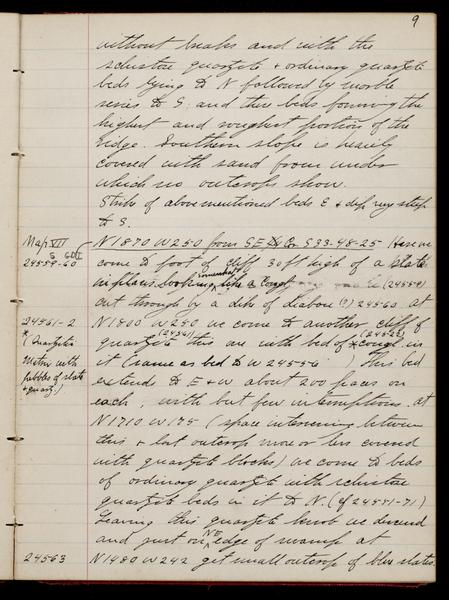 9
without breaks and with the
schistose quartzite & ordinary quartzite
beds lying to N followed by marble
series to S; and these beds forming the
highest and roughest portion of the
ridge. Southern slope is heavily
covered with sand from under
which no outcrops show.
Strike of above mentioned beds E & dip very steep
to S.
Map VII
N 1870 W 250 from S E Cor S 33-48-25 Here we
24559-60
come to foot of cliff 30 ft high of a slate
in places looking somewhat like a cong (24559)
cut through by a dike of diabase (?) 24560. At
24561-2
N 1800 W 250 we come to another cliff of
(Quartzite
Matrix with
pebbles of slate
& quartz.)
quartzite (24561) this one with bed of cong. (24562) in
it (same as bed to W 24556 ) This bed
extends to E & W about 200 paces on
each, with but few interruptions. At
N 1710 W 175 (space intervening between
this & last outcrop more or less covered
with quartzite blocks) we come to beds
of ordinary quartzite with schistose
quartzite beds in it to N. (cf 24551-71)
Leaving this quartzite knob we descend
and just on NE edge of swamp at
24563
N 1480 W 242 get small outcrop of blue slates.